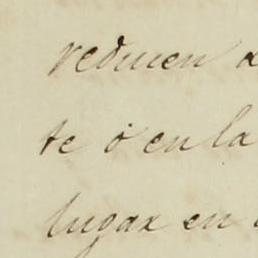 redimen a
te ó en la
lugar en